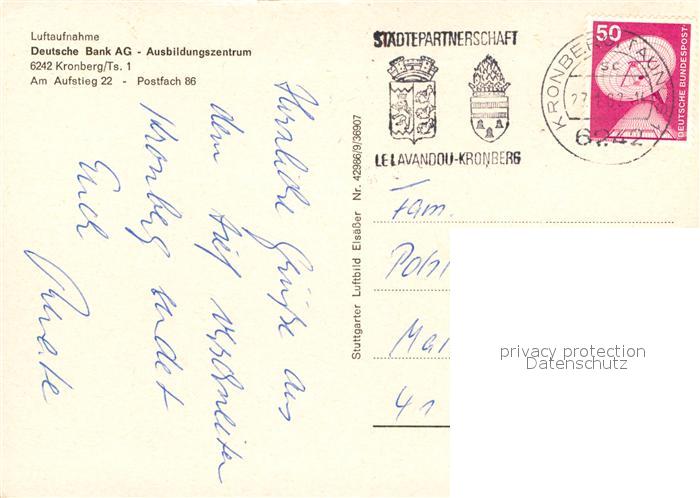 Luftaufnahme
Deutsche Bank AG - Ausbildungszentrum
6242 Kronberg/Ts. 1
Am Aufstieg 22 - Postfach 86
Herzliche Grüße aus
dem tief verschneiten
Kronberg sendet
Euch
Renate
Stuttgarter Luftbild Elsäßer Nr. 42986/9/36907
STÄDTEPARTNERSCHAFT
LE LAVANDOU-KRONBERG
KRONBERG, TAUNUS
6242
50
DEUTSCHE BUNDESPOST
Fam.
41
privacy protection
Datenschutz